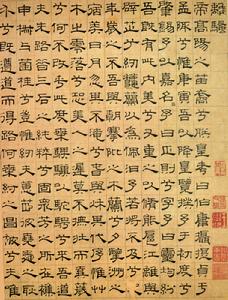 離騷
帝高陽之苗裔兮朕皇考曰伯庸攝提貞于
孟陬兮惟庚寅吾以降皇覽揆余于初度兮
肇錫余以嘉名名余曰正則兮字余曰靈均紛
吾既有此內美兮又重之以脩能扈江離與
辟芷兮紉秋蘭以為佩汩余若將不及兮恐年
歲之不吾與朝搴阰之木蘭兮夕攬洲之
宿莽日月忽其不淹兮春與秋其代序惟草
木之零落兮恐美人之遲暮不撫壯而棄穢
兮何不改乎此度乘騏驥以馳騁兮來吾道
夫先路昔三后之純粹兮固衆芳之所在雜
申椒與菌桂兮豈維紉夫蕙茝彼堯舜之耿
介兮既遵道而得路何桀紂之昌披兮夫唯